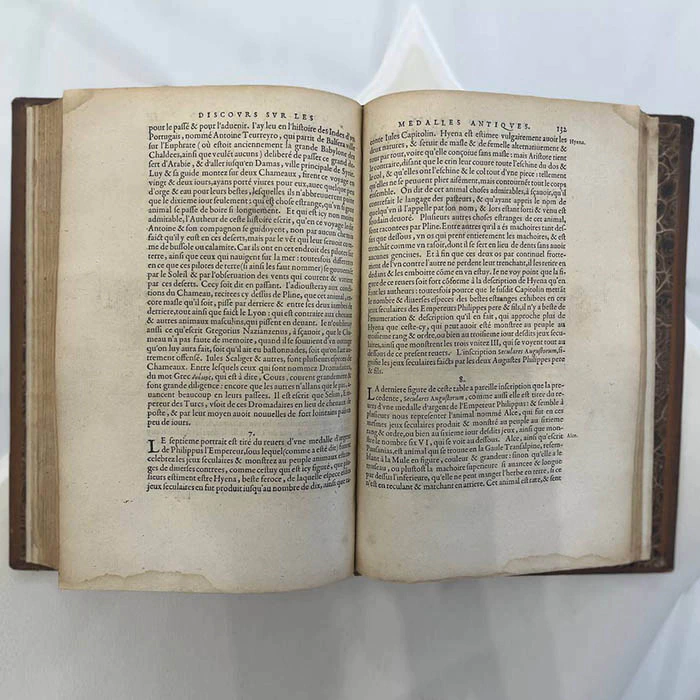 DISCOVRS SVR LES
pour le passé & pour l'aduenir. I'ay leu en l'histoire des Indes d'vn
Portugais, nommé Antoine Teurreyro, qui partit de Balsera ville
sur l'Euphrate (où estoit anciennement la grande Babylone des
Chaldees, ainsi que veulēt aucuns) deliberé de passer ce grand de-
sert d'Arabie, & d'aller iusqu'en Damas, ville principale de Syrie.
Luy & sa guide montez sur deux Chameaux, firent ce voyage en
vingt & deux iours, ayans porté viures pour eux, auec quelque peu
d'orge & eau pour leurs bestes, lesquelles ils n'abbreuuerent point
que le dixieme iour seulement: qui est chose estrange, qu'vn si grand
animal se passe de boire si longuement. Et qui est icy non moins
admirable, l'Autheur de ceste histoire escrit, qu'en ce voyage ledit
Antoine & son compagnon se guidoyent, non par aucun chemin
faict qu'il y eust en ces deserts, mais par le vēt qui leur seruoit com-
me de bussole ou calamite. Car ils ont en cet endroit des pilotes par
terre, ainsi que ceux qui nauigent sur la mer: toutesfois differents
en ce que ces pilotes de terre (si ainsi les faut nommer) se gouuernēt
par le Soleil & par l'obseruation des vents qui courent & ventent
par ces deserts. Cecy soit dit en passant. I'adiousteray aux condi-
tions du Chameau, recitees cy dessus de Pline, que cet animal, en-
core masle qu'il soit, pisse par derriere & entre les deux iambes de
derriere, tout ainsi que faict le Lyon: qui est contraire aux chouans
& autres animaux masculins, qui pissent en deuant. Ie n'oublieray
aussi ce qu'escrit Gregorius Nazianzenus, à sçauoir, que le Cha-
meau n'a pas faute de memoire, quand il se souuient d'vn outrage
qu'on luy aura fait, soit qu'il ait eu bastonnades, soit qu'on l'ait au-
trement offensé. Iules Scaliger & autres, font plusieurs especes de
Chameaux. Entre lesquels ceux qui sont nommez Dromadaires,
du mot Grec, qui est à dire, Cours, courent grandement & font
grande diligence: encore que les autres n'allans que le pas, a-
uancent beaucoup en leurs passees. Il est escrit que Selim, Em-
pereur des Turcs, se seruoit de ces Dromadaires en lieu de cheuaux de
poste, & par leur moyen auoit nouuelles de fort lointain païs en
peu de iours.
7.
LE septieme portrait est tiré du reuers d'vne medalle d'argent
de Philippus l'Empereur, sous lequel (comme a esté dit) furent
celebrez les ieux seculaires & monstrez au peuple animaux estran-
ges de diuerses contrees, comme cestuy qui est icy figuré, que plu-
sieurs estiment estre Hyena, beste feroce, de laquelle espece esdits
jeux seculaires en fut produit iusqu'au nombre de dix, ainsi que ra-
MEDALLES ANTIQVES. 132
conte Iules Capitolin. Hyena est estimee vulgairement auoir les
deux natures, & seruir de masle & de femelle alternatiuement &
tour par tour, voire qu'elle conçoiue sans masle: mais Aristote tient
le contraire, disant que le crin leur couure toute l'eschine du dos &
le col, & qu'elles ont l'eschine & le col tout d'vne piece: tellement
qu'elles ne se peuuent plier aisément, mais contournēt tout le corps
ensemble. On dit de cet animal choses admirables, à sçauoir, qu'il
contrefait le langage des pasteurs, & qu'ayant appris le nom de
quelqu'vn il l'appelle par son nom, & lors estant sorti & venu est
soudain deuoré. Plusieurs autres choses estranges de cet animal,
sont racontees par Pline. Entre autres qu'il a és machoires tant des-
sus que dessous, vn os qui prent entierement les machoires, & est
trenchât comme vn rasoir, dont il se sert en lieu de dents sans auoir
aucunes gencines. Et à fin que ces deux os par continuel frotte-
ment de l'vn contre l'autre ne perdent leur trenchāt, il les retire en
dedans & les emboitte côme en vn estuy. Ie ne voy point que la fi-
gure de ce reuers soit fort côforme à la description de Hyena qu'en
font les autheurs: toutesfois pource que le susdit Capitolin mettāt le
nombre & diuerses especes des bestes estranges exhibees en ces
jeux seculaires des Empereurs Philippes pere & fils, il n'y a beste de
l'enumeration & description qu'il en fait, qui approche plus de
Hyena que ceste-cy, qui peut auoir esté monstree au peuple au
troisieme rang & ordre, ou bien au troisieme iour desdits jeux secu-
laires, ainsi que monstrent les trois vnitez III, qui se voyent tout au
dessous de ce present reuers. L'inscription Seculares Augustorum, si-
gnifie les jeux seculaires faicts par les deux Augustes Philippes pere
& fils.
8.
LA derniere figure de ceste table a pareille inscription que la pre-
cedente, Seculares Augustorum, comme aussi elle est tiree du
reuers d'vne medalle d'argent de l'Empereur Philippus: & semble à
plusieurs que ce soit l'animal nommé Alce, qui fut en ces
mesmes jeux seculaires produit & monstré au peuple au sixieme
rang & ordre, ou bien au sixieme iour desdits jeux, ainsi que mon-
stre le nombre six VI, qui se voit au dessous. Alce, ainsi qu'escrit
Pausanias, est animal qui se trouue en la Gaule Transalpine, ressem-
blant à la Mule en figure, couleur & grandeur: sinon qu'elle a le
museau, ou plustost la machoire superieure si auancee & longue
par dessus l'inferieure, qu'elle ne peut manger l'herbe en terre, si ce
n'est en reculant & marchant en arriere. Cet animal est rare, & sent
Hyena.
Alce.